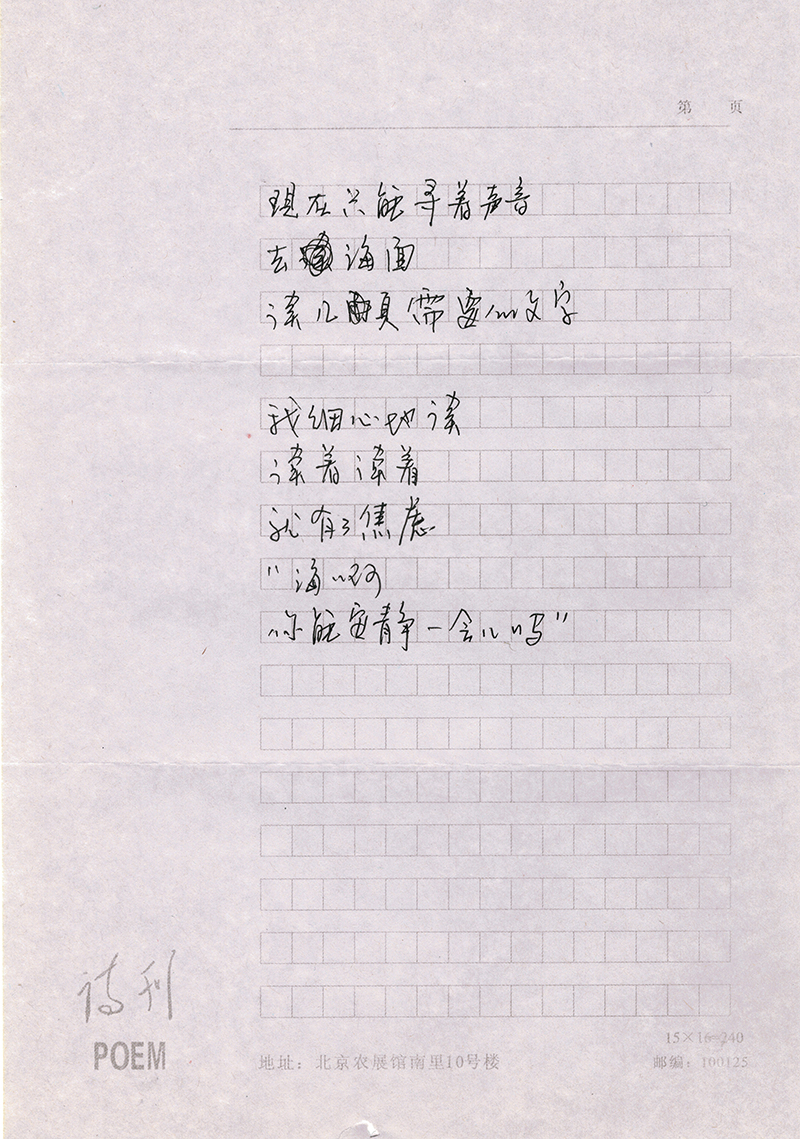 第 页
现在只能寻着声音
去海面
读几页需要的文字
我细心地读
读着读着
就有了焦虑
"海啊
你能安静一会儿吗"
诗刊
POEM
15×16=240
地址：北京农展馆南里10号楼
邮编：100125